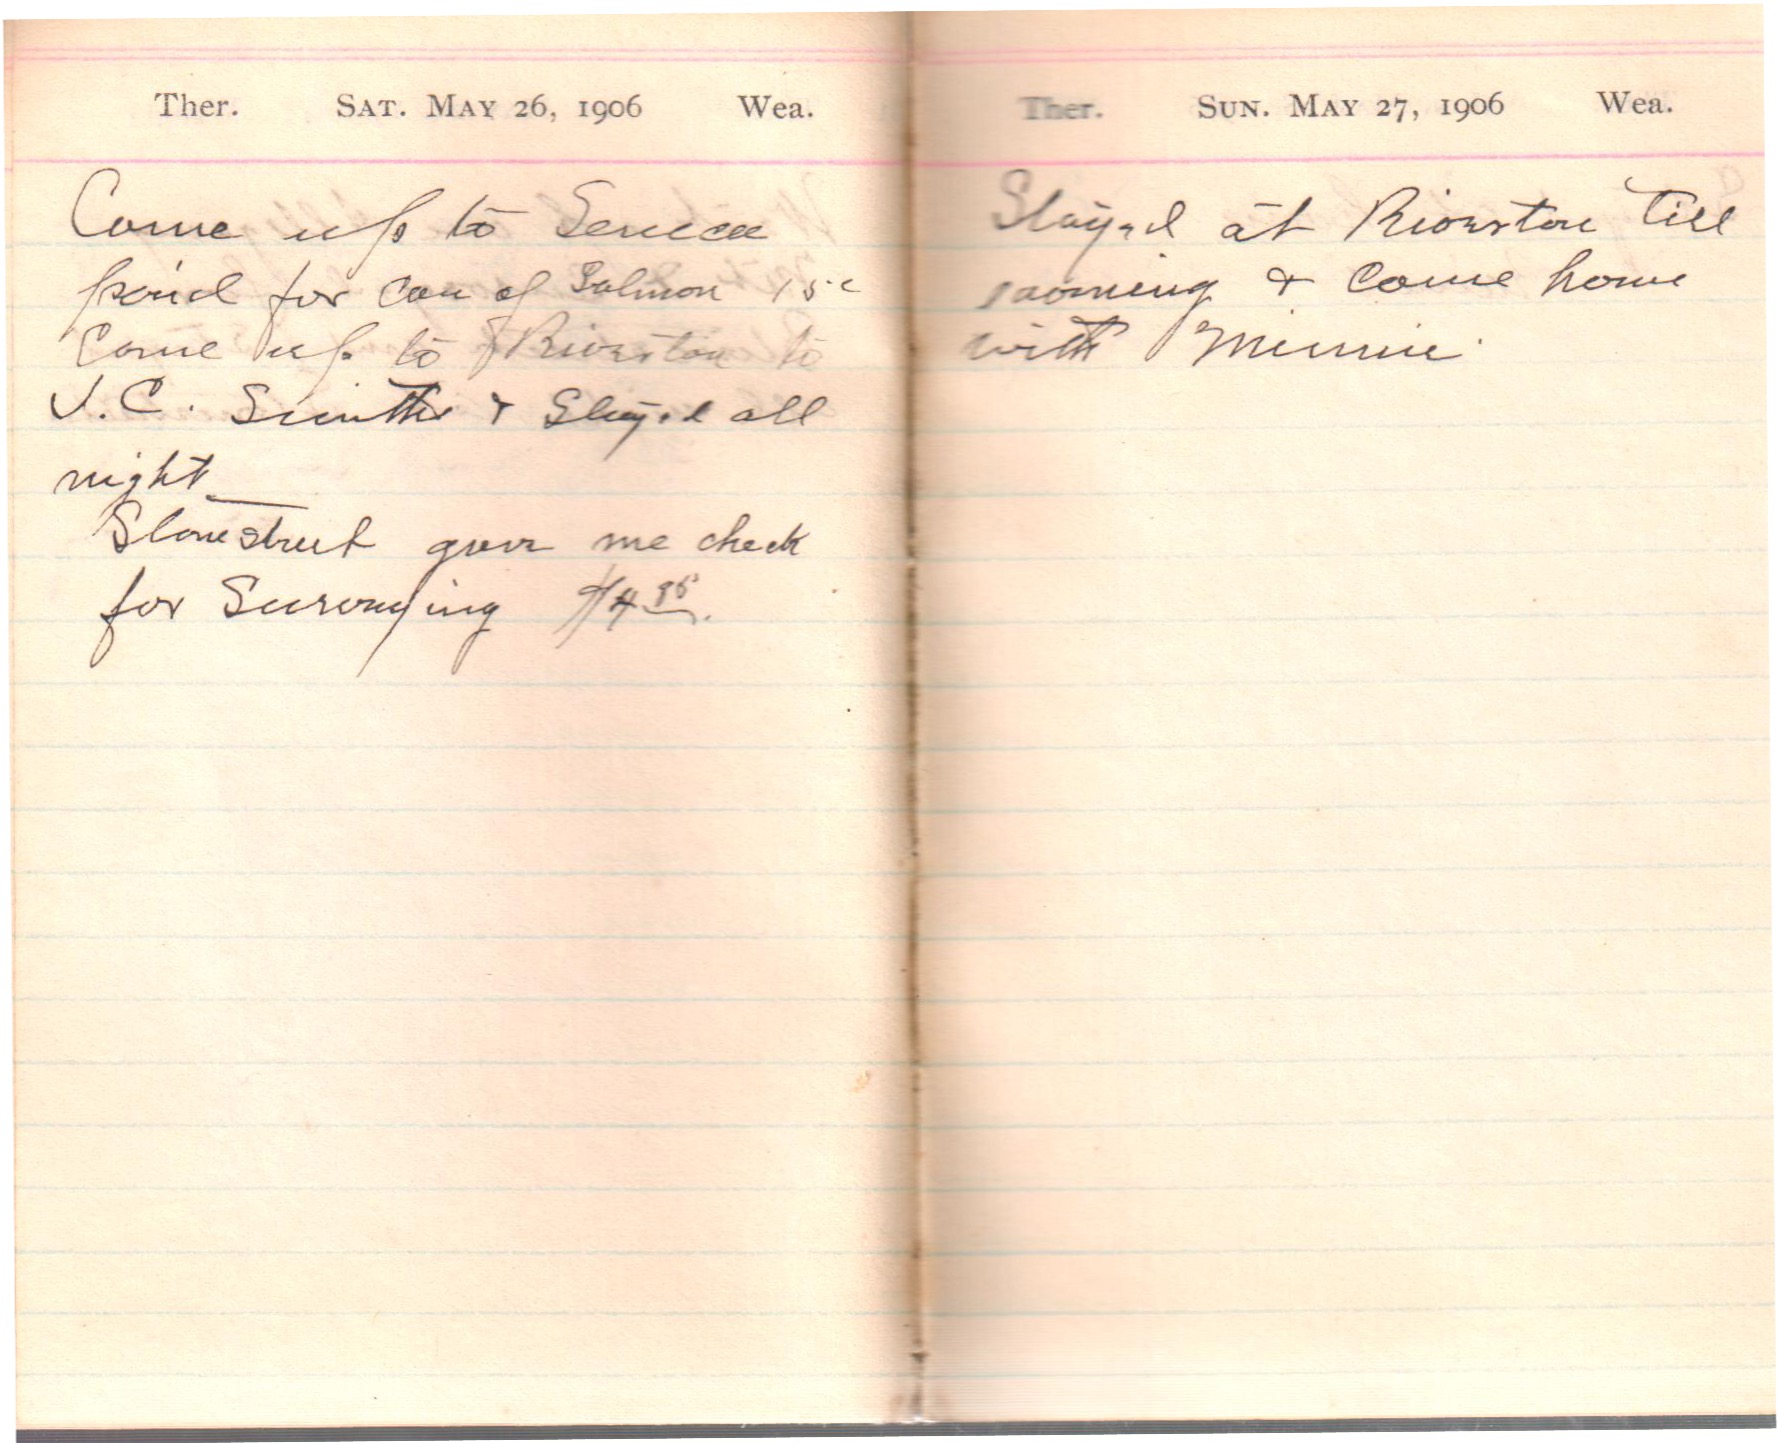 Ther. SAT. MAY 26, 1906 Wea.
Come up to Seneca
paid for can of Salmon 15c
Come up to Riverton to
J.C. Smiths & Stayed all
night
Stonestreet gave me check
for Surveying $4.95.
Ther. SUN. MAY 27, 1906 Wea.
Stayed at Riverton till
morning & Come home
with Minnie